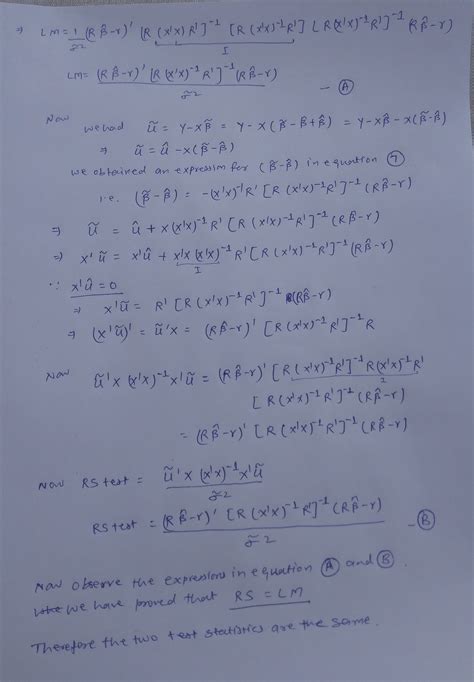 ⇒ LM = 1/σ̃2 (Rβ̂-r)' [R (x'x)-1 R']-1 [R (x'x)-1 R'] [R(x'x)-1 R']-1 (Rβ̂-r)
I
LM = (Rβ̂-r)' [R(x'x)-1 R']-1 (Rβ̂-r) / σ̃2 — (A)
Now we had ũ = Y-xβ̃ = Y-x(β̃-β̂+β̂) = Y-xβ̂-x(β̃-β̂)
⇒ ũ = û-x(β̃-β̂)
we obtained an expression for (β̃-β̂) in equation (7)
i.e. (β̃-β̂) = -(x'x)-1R' [R (x'x)-1 R']-1 (Rβ̂-r)
⇒ ũ = û + x(x'x)-1 R' [R (x'x)-1 R']-1 (Rβ̂-r)
⇒ x'ũ = x'û + x'x (x'x)-1 R' [R (x'x)-1 R']-1 (Rβ̂-r)
I
∵ x'û = 0
⇒ x'ũ = R' [R (x'x)-1 R']-1 (Rβ̂-r)
⇒ (x'ũ)' = ũ'x = (Rβ̂-r)' [R (x'x)-1 R']-1 R
Now ũ'x (x'x)-1 x'ũ = (Rβ̂-r)' [R (x'x)-1 R']-1 R(x'x)-1 R'
[R (x'x)-1 R']-1 (Rβ̂-r)
= (Rβ̂-r)' [R (x'x)-1 R']-1 (Rβ̂-r)
Now RS test = ũ'x (x'x)-1 x'ũ / σ̃2
RS test = (Rβ̂-r)' [R (x'x)-1 R']-1 (Rβ̂-r) / σ̃2 — (B)
Now observe the expressions in equation (A) and (B).
we have proved that RS = LM
Therefore the two test statistics are the same.